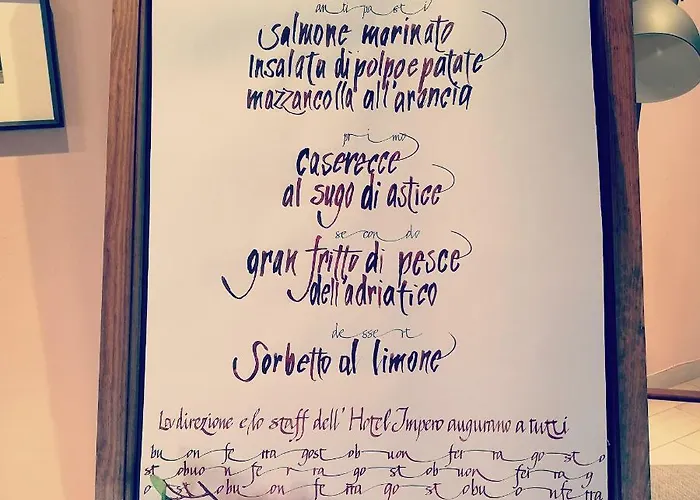 antipasti
salmone marinato
insalata di polpo e patate
mazzancolla all'arancia
primo
caserecce
al sugo di astice
secondo
gran fritto di pesce
dell'adriatico
dessert
Sorbetto al limone
La direzione e lo staff dell'Hotel Impero augurano a tutti
buon ferragosto buon ferragosto
st obuon ferragosto buon ferrag
o st obuon ferragosto buon ferra